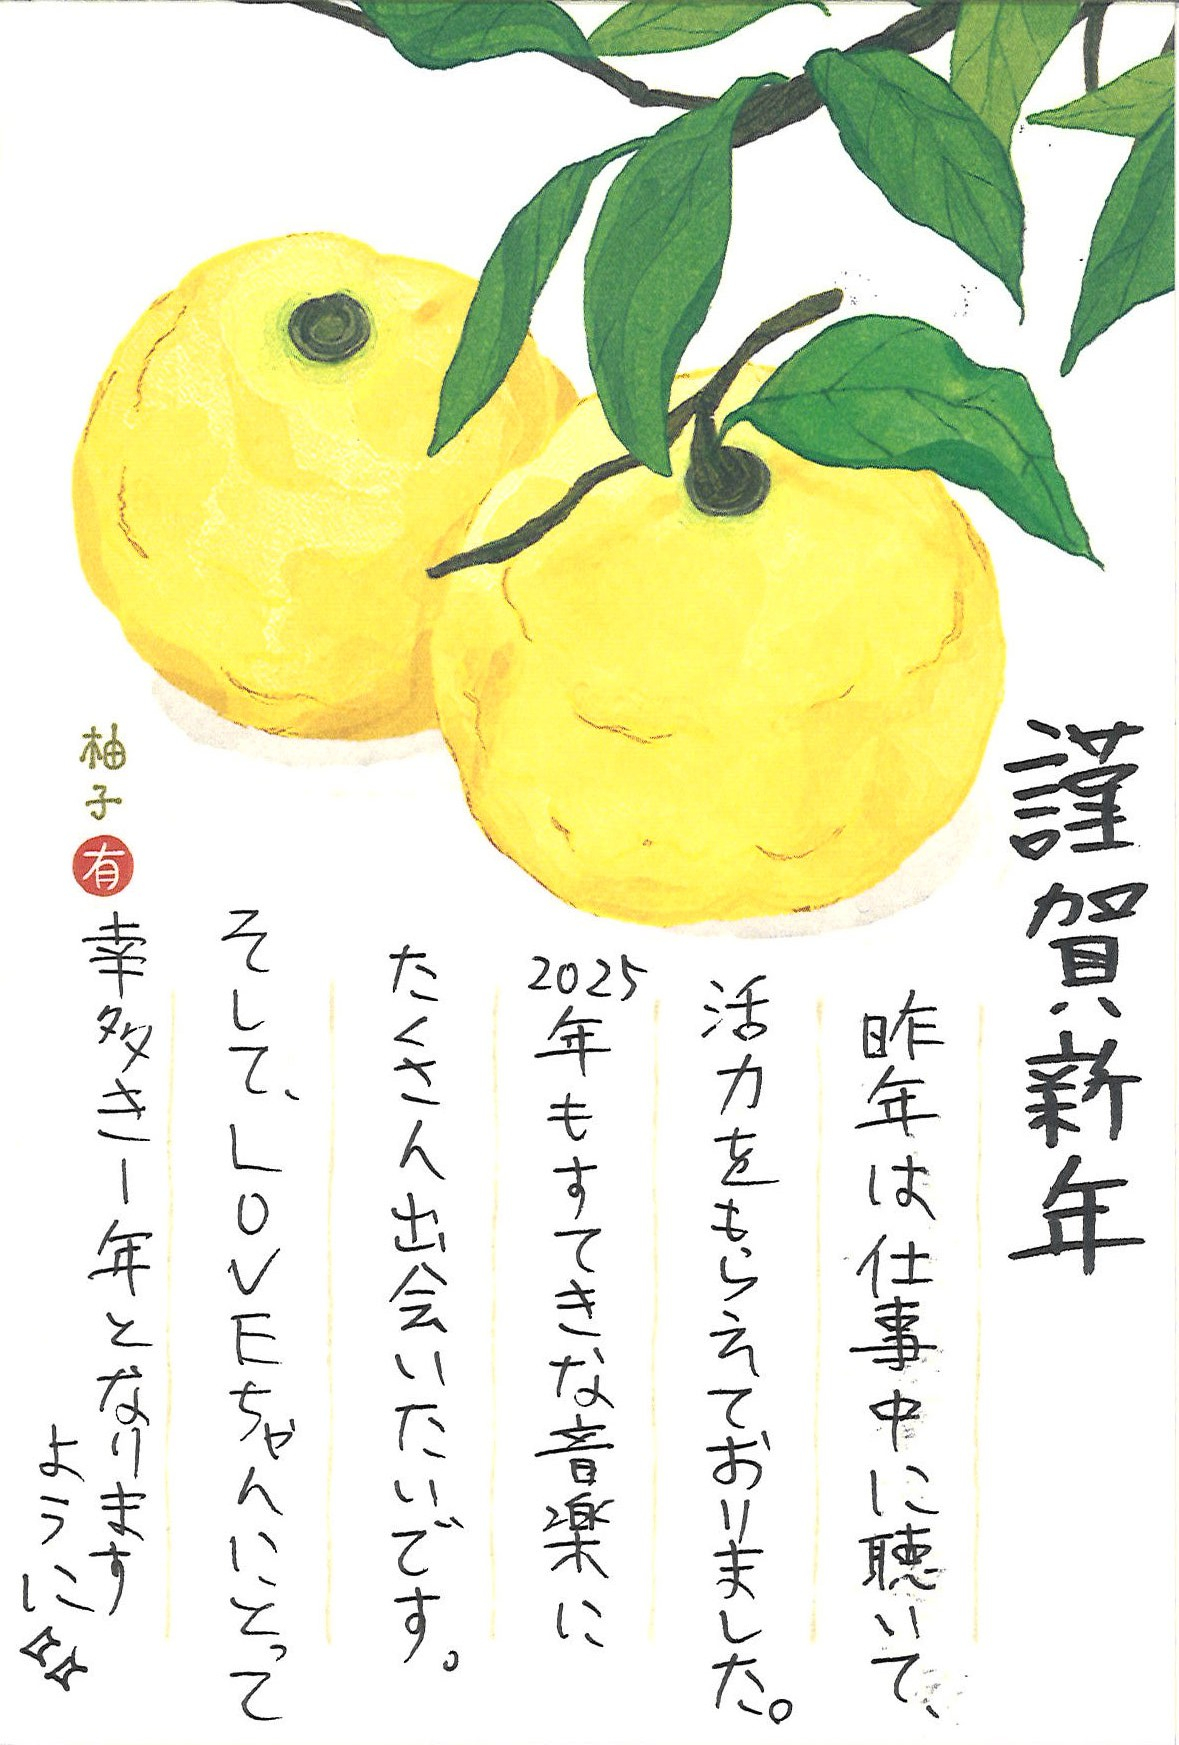 謹賀新年
昨年は仕事中に聴いて、
活力をもらえておりました。
2025年もすてきな音楽に
たくさん出会いたいです。
そして、LOVEちゃんにとって
幸多き一年となります
ように
柚子
有